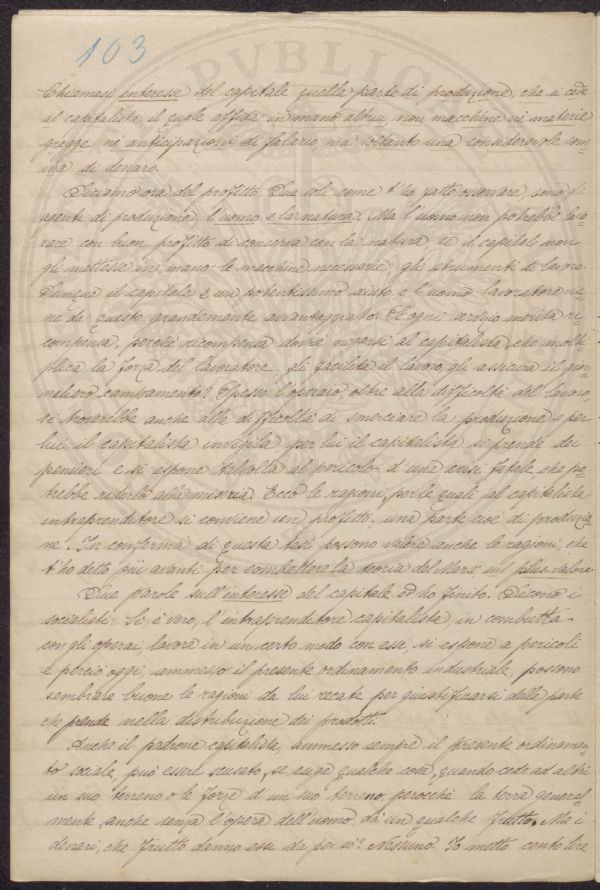 103
Chiamasi interesse del capitale quella parte di produzione, che si cede
al capitalista, il quale affida in mano altrui, non macchine nè materie
gregge nè anticipazioni di salario, ma soltanto una considerevole som-
ma di denaro.
Diciamo ora del profitto. Due sole come t'ho fatto osservare, sono gli
agenti di produzione, l'uomo e la natura. Ma l'uomo non potrebbe lavo-
rare con buon profitto di conserva con la natura, se il capitale non
gli mettesse in mano le macchine necessarie, gli strumenti di lavoro.
Dunque il capitale è un potentissimo aiuto e l'uomo lavoratore vie-
ne da questo grandemente avvantaggiato. Se ogni servizio merita ri-
compensa, perchè ricompensa dovrà negarsi al capitalista, che molti-
plica la forza del lavoratore gli facilita il lavoro, gli assicura il gior-
naliero campamento? Spesso l'operaio, oltre alla difficoltà del lavoro,
si troverebbe anche alla difficoltà di smerciare la produzione e per
lui il capitalista invigila per lui il capitalista si prende dei
pensieri e si espone talvolta al pericolo d'una crisi fatale che po-
trebbe ridurlo alla miseria. Ecco le ragioni, per le quali al capitalista
intraprenditore si conviene un profitto, una parte cioè di produzio-
ne. In conferma di questa tesi possono valere anche le ragioni, che
t'ho detto più avanti per combattere la teoria del Marx sul plus-valore.
Due parole sull'interesse del capitale ed ho finito. Dicono i
socialisti: Si è vero, l'intraprenditore capitalista, in combutta
con gli operai, lavora in un certo modo con essi, si espone a pericoli
e perciò oggi, ammesso il presente ordinamento industriale, possono
sembrare buone le ragioni da lui recate per giustificarsi della parte
che prende nella distribuzione dei prodotti.
Anche il padrone capitalista, ammesso sempre il presente ordinamen-
to sociale, può essere scusato, se esige qualche cosa, quando cede ad altri
un suo terreno o le forze d'un suo terreno, perocchè la terra general-
mente, anche senza l'opera dell'uomo dà un qualche frutto. Ma i
denari, che frutto danno essi da per sè? Nessuno. Io metto cento lire